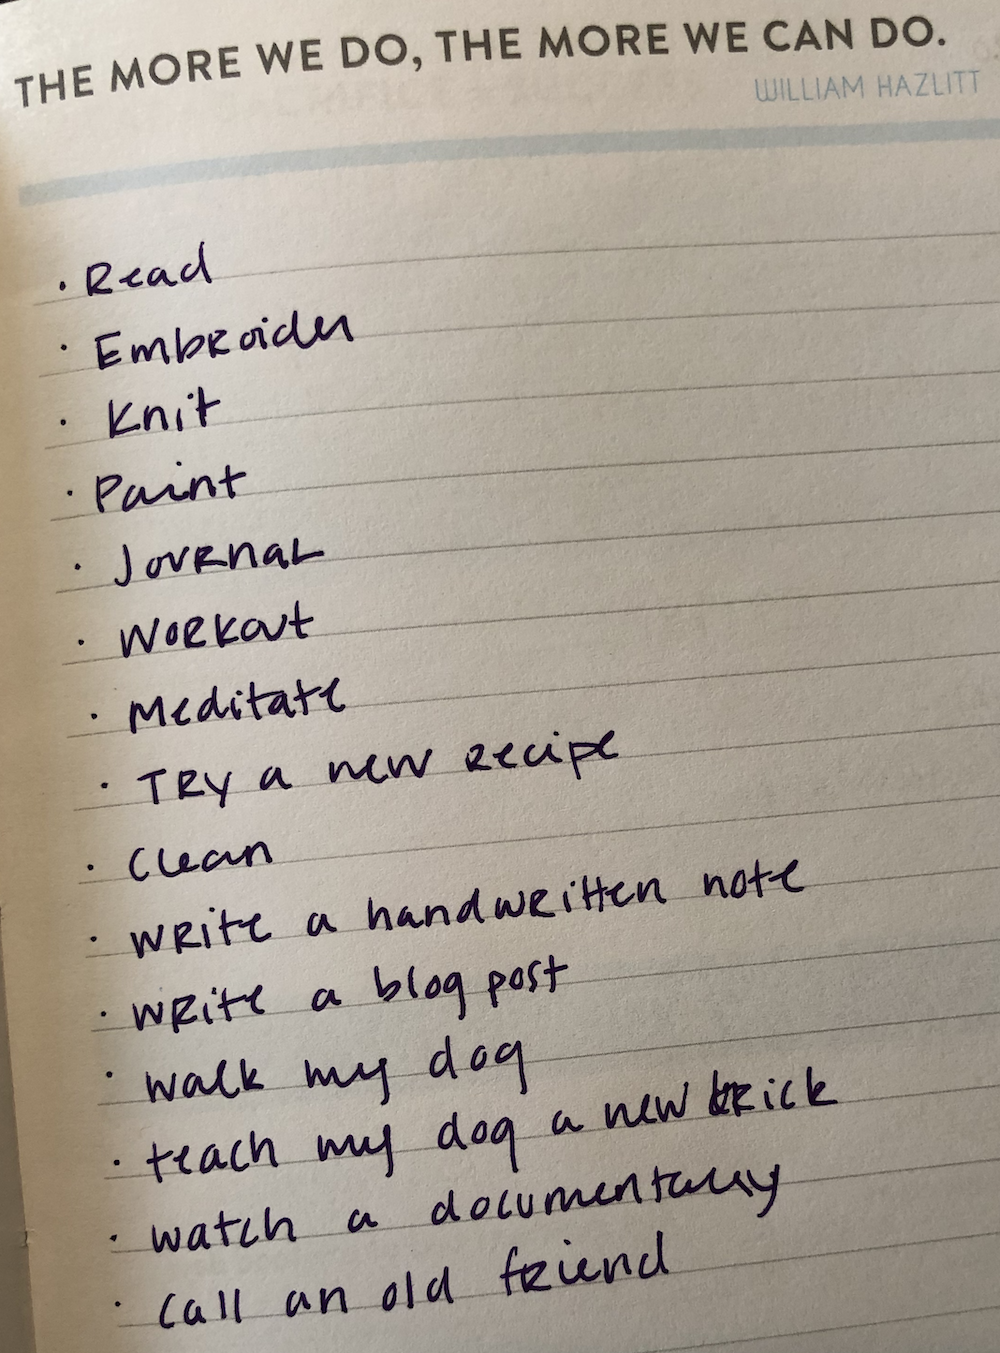 THE MORE WE DO, THE MORE WE CAN DO.
WILLIAM HAZLITT
· Read
· Embroider
· Knit
· Paint
· Journal
· Workout
· Meditate
· Try a new recipe
· Clean
· write a handwritten note
· write a blog post
· walk my dog
· teach my dog a new trick
· watch a documentary
· call an old friend